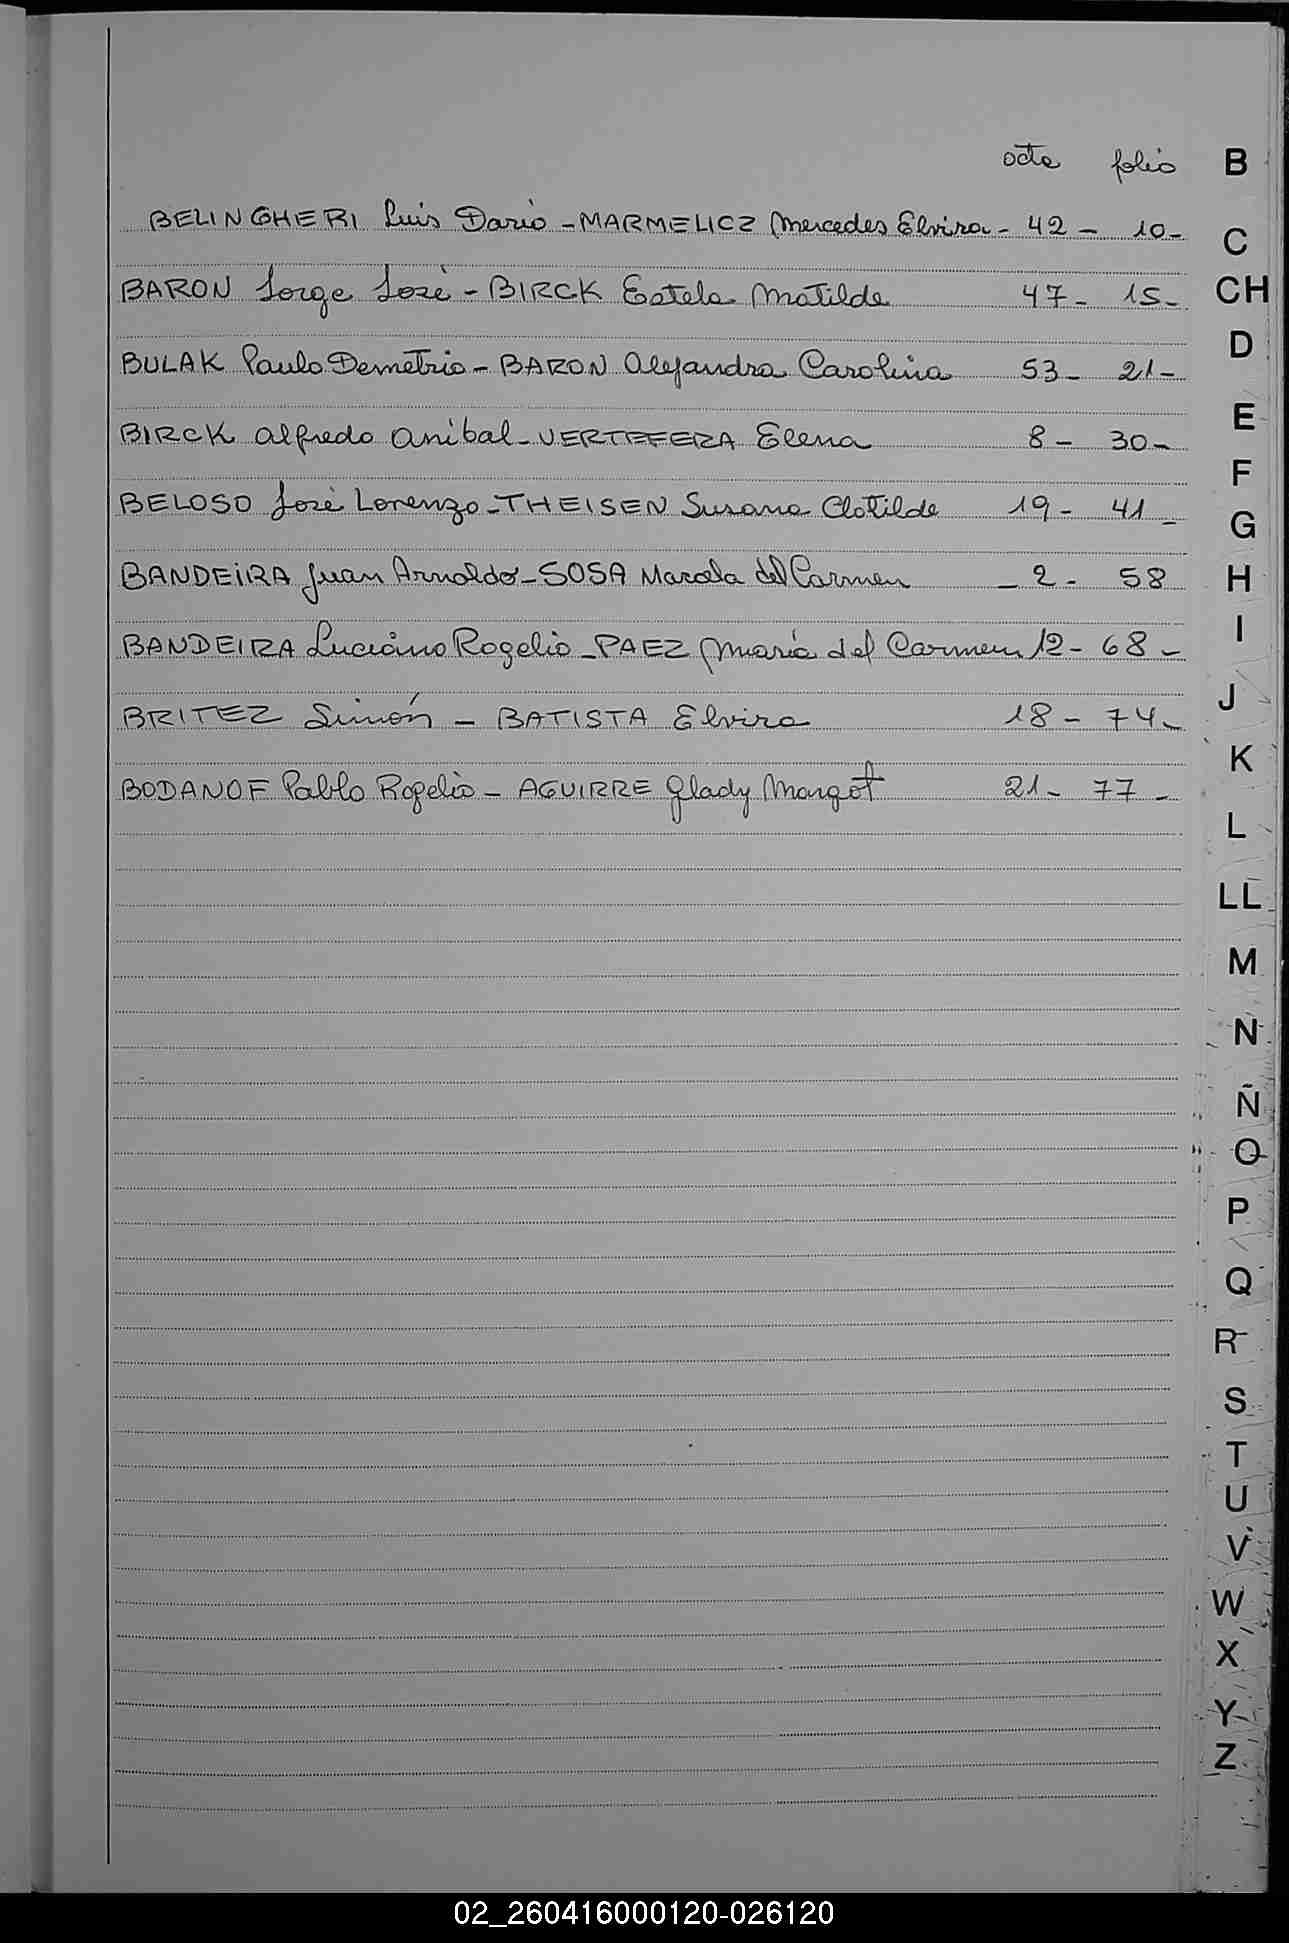 acta folio
BELINGHERI Luis Dario - MARMELICZ Mercedes Elvira - 42 - 10 -
BARON Jorge José - BIRCK Estela Matilde 47 - 15 -
BULAK Paulo Demetrio - BARON Alejandra Carolina 53 - 21 -
BIRCK Alfredo Anibal - Elena 8 - 30 -
BELOSO José Lorenzo - THEISEN Susana Clotilde 19 - 41 -
BANDEIRA Juan Arnoldo - SOSA Marcela del Carmen - 2 - 58
BANDEIRA Luciano Rogelio - PAEZ María del Carmen 12 - 68 -
BRITEZ Simón - BATISTA Elvira 18 - 74 -
BODANOF Pablo Rogelio - AGUIRRE Glady Margot 21 - 77 -
B
C
CH
D
E
F
G
H
I
J
K
L
LL
M
N
Ñ
O
P
Q
R
S
T
U
V
W
X
Y
Z
02_260416000120-026120